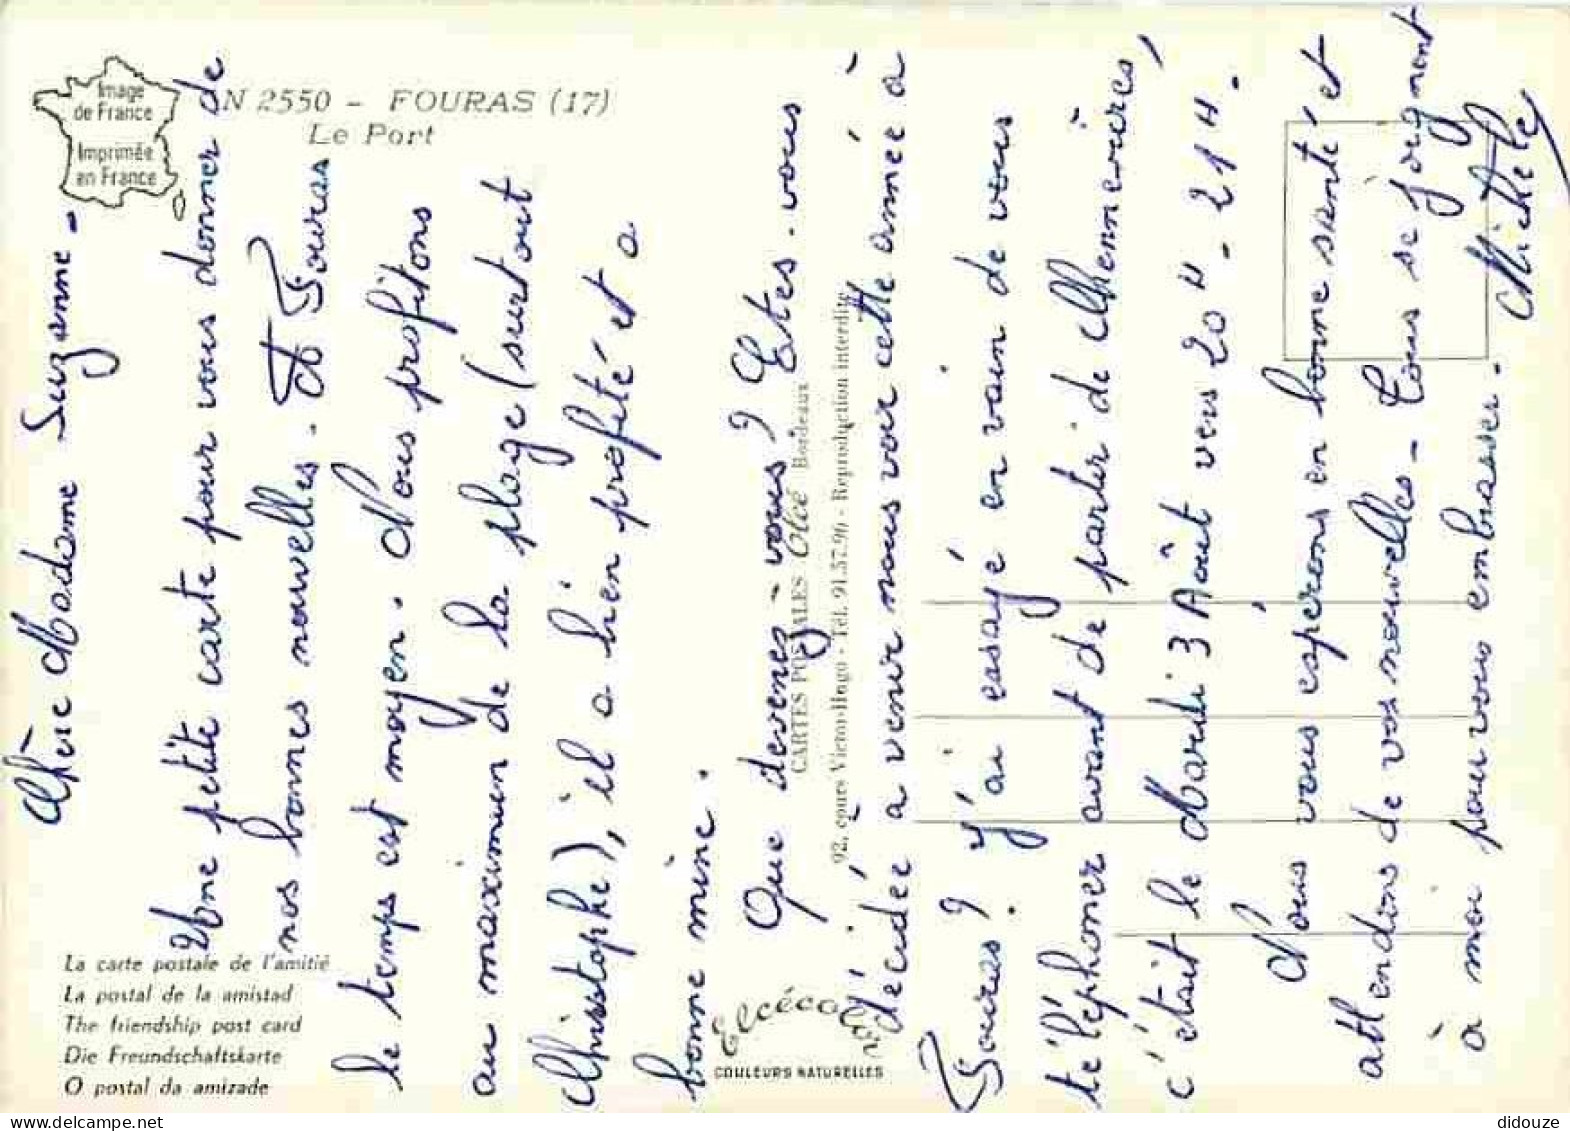 Image
de France
Imprimée
en France
N 2550 - FOURAS (17)
Le Port
Chère Madame Suzanne -
Une petite carte pour vous donner de
nos bonnes nouvelles. A Fouras
le temps est moyen. Nous profitons
au maximum de la plage (surtout
Christophe), il a bien profité et a
bonne mine.
Que devenez-vous ? Etes-vous
décidée à venir nous voir cette année à
Fouras ? J'ai essayé en vain de vous
téléphoner avant de partir de
c'était le Mardi 3 Août vers 20H - 21H.
Nous vous espérons en bonne santé et
attendons de vos nouvelles - Tous se joignent
à moi pour vous embrasser.
Michèle
CARTES POSTALES Elcé Bordeaux
92, cours Victor-Hugo - Tél. 91.57.90 - Reproduction interdite
La carte postale de l'amitié
La postal de la amistad
The friendship post card
Die Freundschaftskarte
O postal da amizade
Elcécolor
COULEURS NATURELLES
didouze